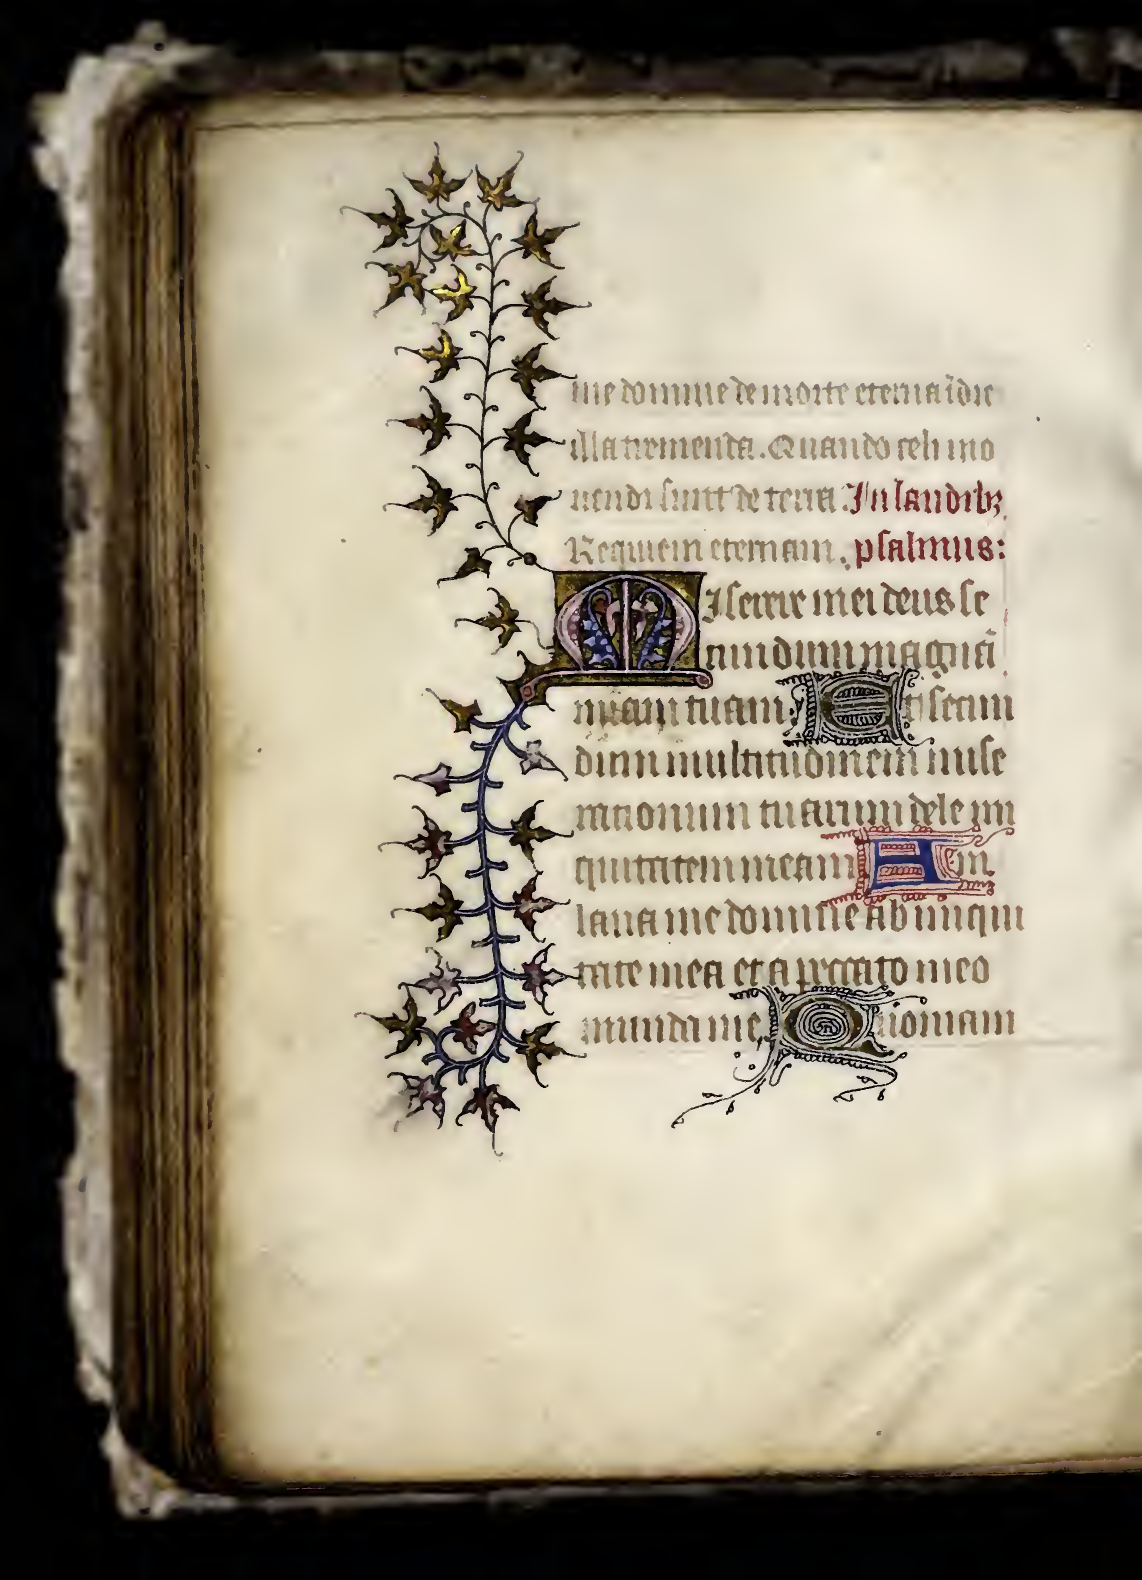 me domine de morte eterna ī die
illa tremenda. Quando celi mo
uendi sunt et terra. In laudibꝫ
Requiem eternam. psalmus:
Miserere mei deus se
cundum magnā
miam tuam. Et secun
dum multitudinem mise
rationum tuarum dele ini
quitatem meam Am
laua me domine ab iniqui
tate mea et a peccato meo
munda me Quoniam